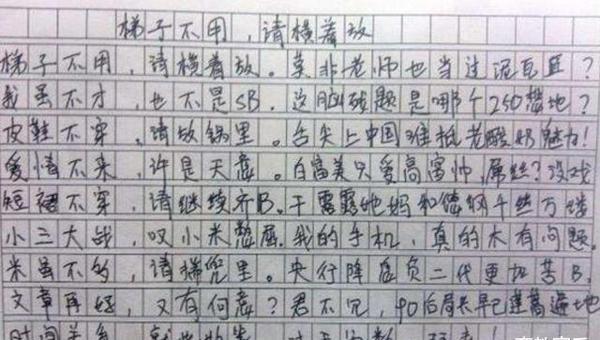 梯子不用，请横着放
梯子不用，请横着放。莫非老师也当过泥瓦匠？
我虽不才，也不是SB。这脑残题是哪个250想地？
皮鞋不穿，请放锅里。舌尖上中国难抵老酸奶魅力！
爱情不来，许是天意。白富美只爱高富帅，屌丝？没戏
短裙不穿，请继续齐B。干露露她妈和德纲千丝万缕
小三大战，叹小米憋屈。我的手机，真的木有问题。
米虽不多，请揣兜里。央行降息负二代更加苦B。
文章再好，又有何意？君不见，90后局长早已遍地
时间关系，就此